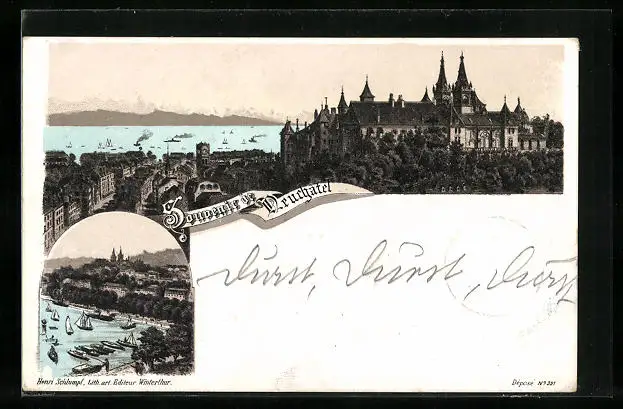 Souvenir de Neuchâtel
Durst, Durst, Durst
Henri Schlumpf, Lith. art. Editeur Winterthur.
Déposé No 391